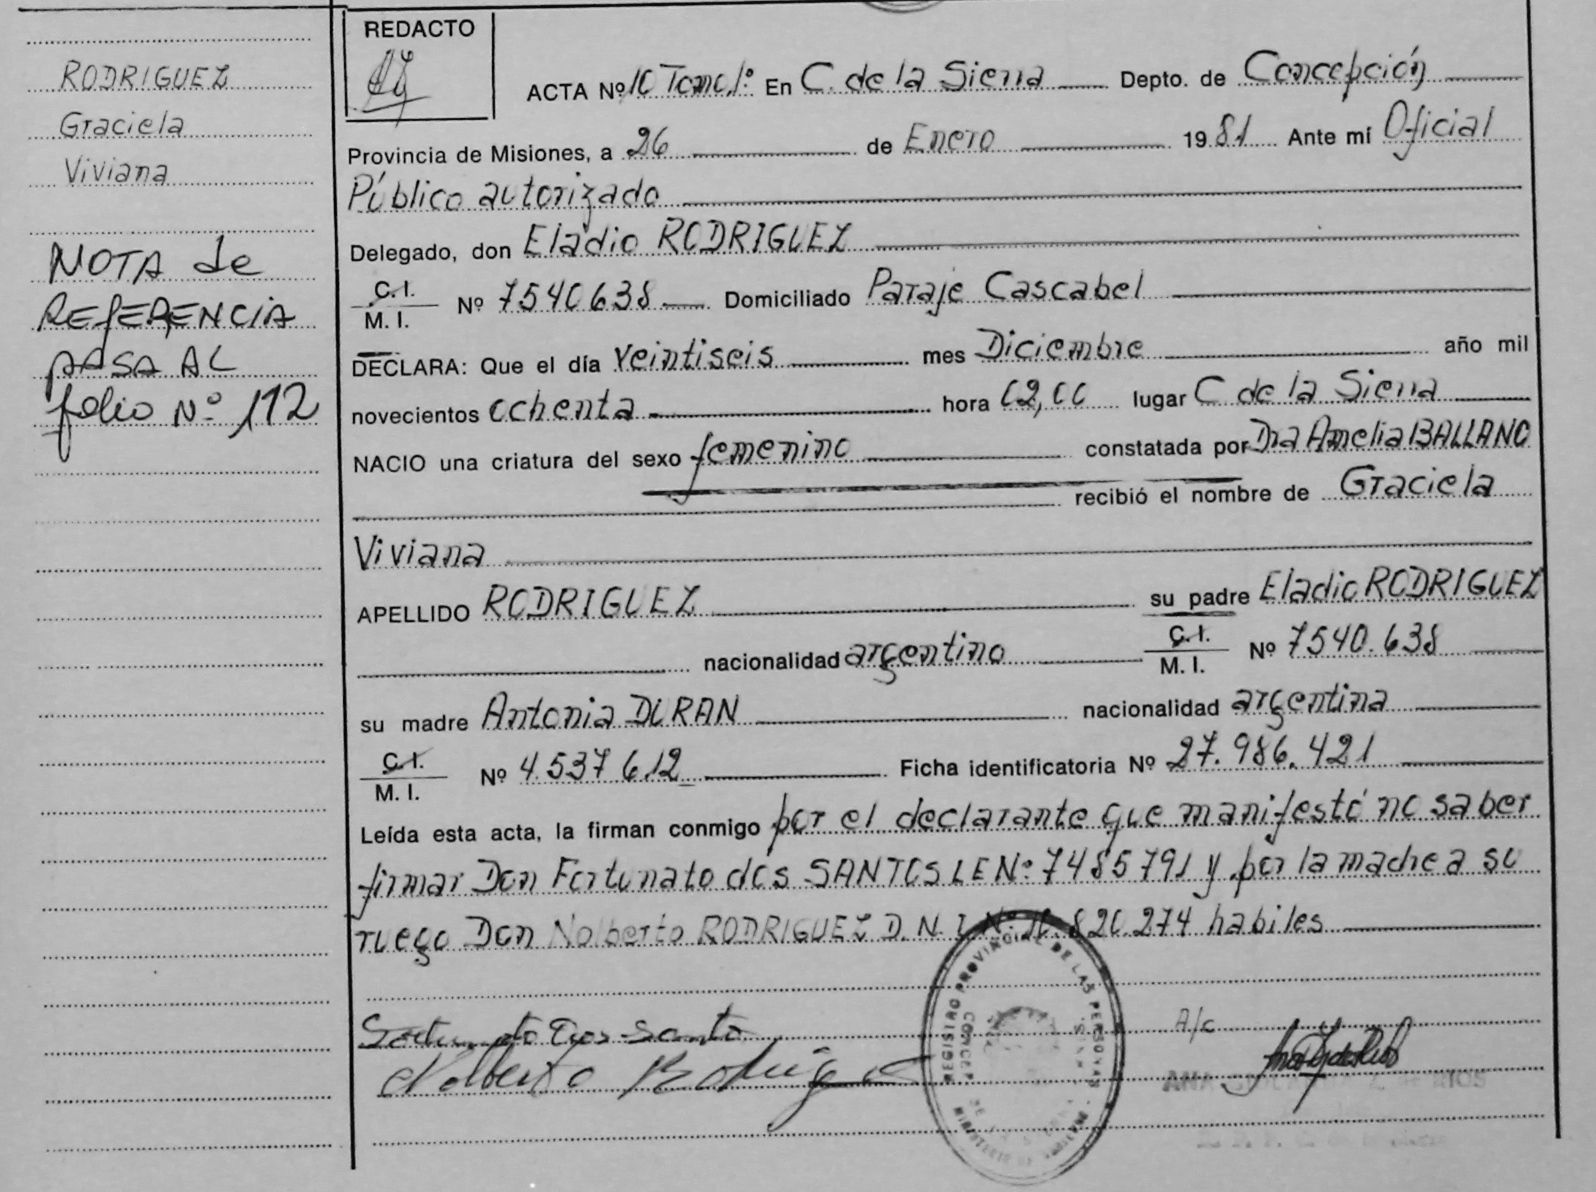 RODRIGUEZ
Graciela
Viviana
NOTA de
REFERENCIA
PASA AL
folio Nº 112
REDACTO
ACTA Nº 10 Tomo 1º En C. de la Sierra Depto. de Concepción
Provincia de Misiones, a 26 de Enero 1981 Ante mí Oficial
Público autorizado
Delegado, don Eladio RODRIGUEZ
C.I. / M. I. Nº 7540.638 Domiciliado Paraje Cascabel
DECLARA: Que el día veintiseis mes Diciembre año mil
novecientos ochenta hora 02,00 lugar C de la Sierra
NACIO una criatura del sexo femenino constatada por Dra Amelia BALLANO
recibió el nombre de Graciela
Viviana
APELLIDO RODRIGUEZ su padre Eladio RODRIGUEZ
nacionalidad argentino C.I. / M. I. Nº 7540.638
su madre Antonia DURAN nacionalidad argentina
C.I. / M. I. Nº 4.537.612 Ficha identificatoria Nº 27.986.421
Leída esta acta, la firman conmigo por el declarante que manifestó no saber
firmar Don Fortunato dos SANTOS LE Nº 7485791 y por la madre a su
ruego Don Nolberto RODRIGUEZ D.N.I. Nº 10.820.274 habiles
Nolberto Rodrigue
A/c
REGISTRO PROVINCIAL DE LAS PERSONAS